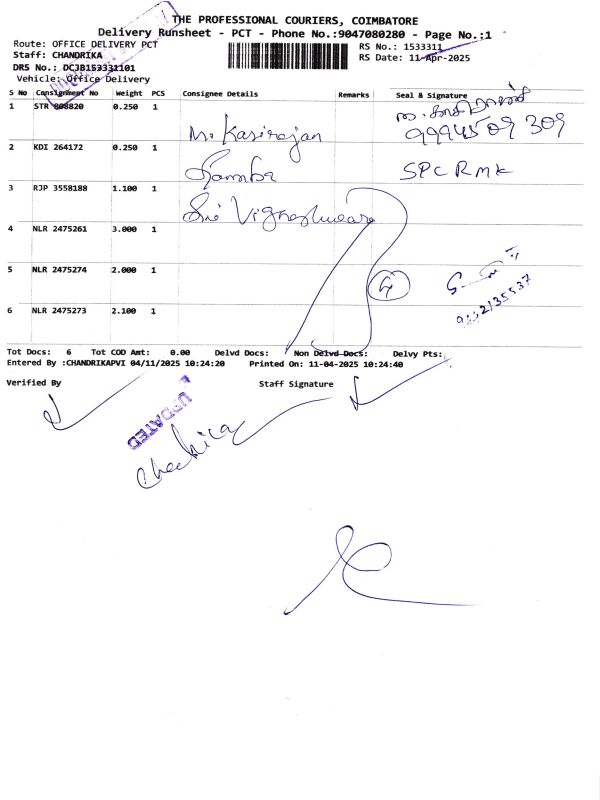 THE PROFESSIONAL COURIERS, COIMBATORE
Delivery Runsheet - PCT - Phone No.:9047080280 - Page No.:1
Route: OFFICE DELIVERY PCT
RS No.: 1533311
Staff: CHANDRIKA
RS Date: 11-Apr-2025
DRS No.: DCJB153331101
Vehicle: Office Delivery
S No Consignment No Weight PCS Consignee Details Remarks Seal & Signature
1 STR 808820 0.250 1
M. Kasirajan 9994509 309
2 KDI 264172 0.250 1
SPCRMK
3 RJP 3558188 1.100 1
Sri Vigneshwara
4 NLR 2475261 3.000 1
4
5 NLR 2475274 2.000 1
6 NLR 2475273 2.100 1
Tot Docs: 6 Tot COD Amt: 0.00 Delvd Docs: Non Delvd Docs: Delvy Pts:
Entered By :CHANDRIKAPVI 04/11/2025 10:24:20 Printed On: 11-04-2025 10:24:40
Verified By Staff Signature
UPDATED